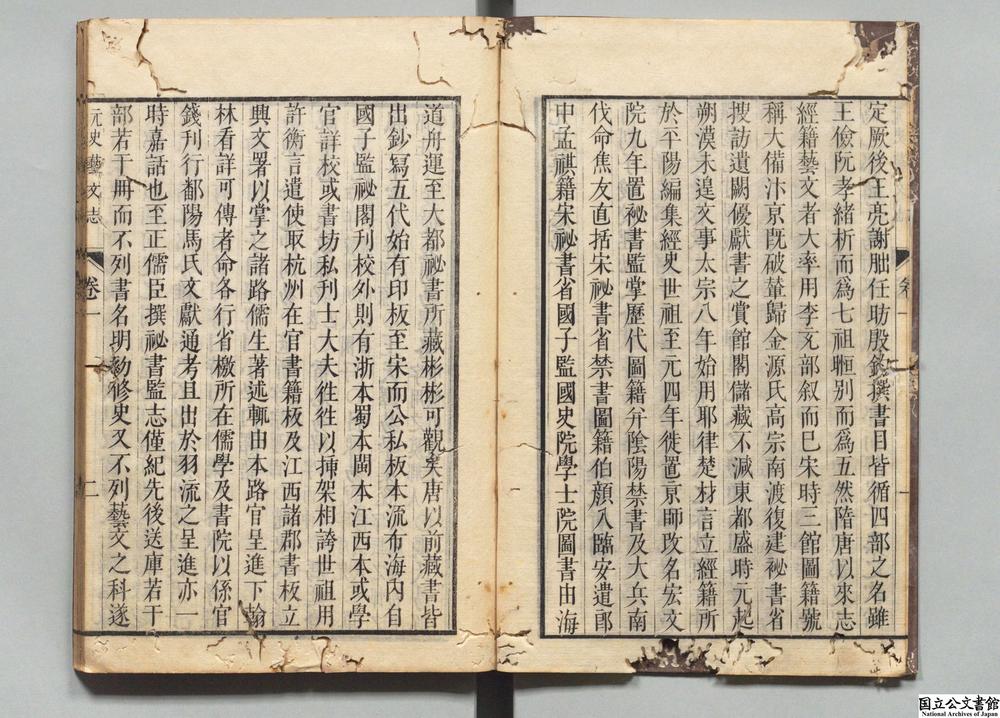 定厥後王亮謝朏任昉殷鈞撰書目皆循四部之名雖
王儉阮孝緒析而爲七祖暅别而爲五然隋唐以來志
經籍藝文者大率用李充部叙而已宋時三館圖籍號
稱大備汴京旣破輦歸金源氏高宗南渡復建祕書省
搜訪遺闕優獻書之賞館閣儲藏不減東都盛時元起
朔漠未遑文事太宗八年始用耶律楚材言立經籍所
於平陽編集經史世祖至元四年徙置京師改名宏文
院九年置祕書監掌歷代圖籍幷陰陽禁書及大兵南
伐命焦友直括宋祕書省禁書圖籍伯顏入臨安遣郎
中孟祺籍宋祕書省國子監國史院學士院圖書由海
道舟運至大都祕書所藏彬彬可觀矣唐以前藏書皆
出鈔寫五代始有印板至宋而公私板本流布海内自
國子監祕閣刋校外則有浙本蜀本閩本江西本或學
官詳校或書坊私刋士大夫徃徃以揷架相誇世祖用
許衡言遣使取杭州在官書籍板及江西諸郡書板立
興文署以掌之諸路儒生著述輒由本路官呈進下翰
林看詳可傳者命各行省檄所在儒學及書院以係官
錢刋行鄱陽馬氏文獻通考且出於羽流之呈進亦一
時嘉話也至正儒臣撰祕書監志僅紀先後送庫若干
部若干冊而不列書名明初修史又不列藝文之科遂
元史藝文志
卷一
二
国立公文書館
National Archives of Japan